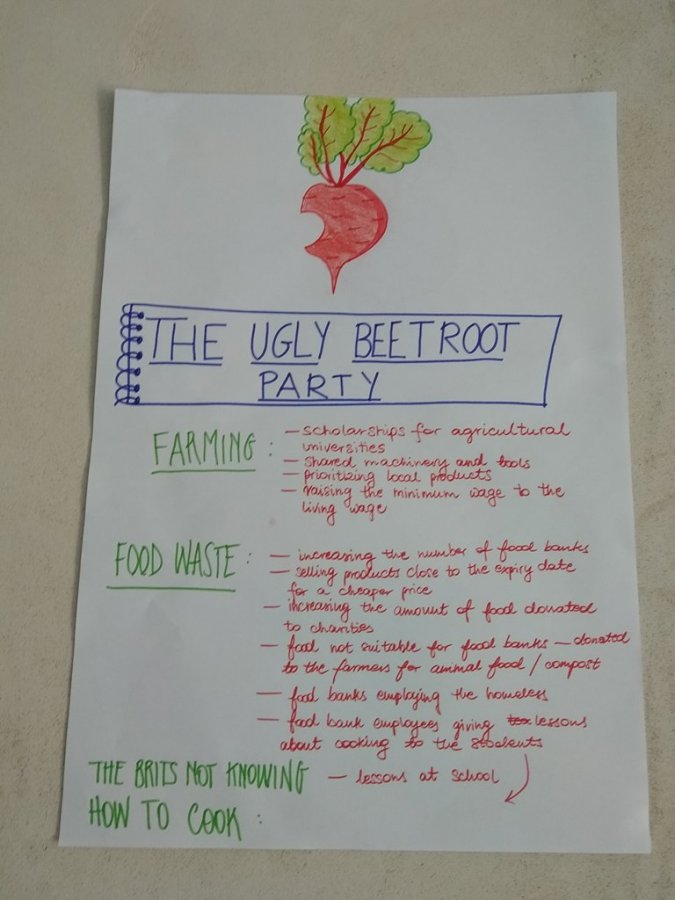 THE UGLY BEETROOT
PARTY
FARMING :
- scholarships for agricultural
universities
- shared machinery and tools
- prioritizing local products
- raising the minimum wage to the
living wage
FOOD WASTE :
- increasing the number of food banks
- selling products close to the expiry date
for a cheaper price
- increasing the amount of food donated
to charities
- food not suitable for food banks - donated
to the farmers for animal food / compost
- food banks employing the homeless
- food bank employees giving lessons
about cooking to the students
THE BRITS NOT KNOWING
HOW TO COOK :
- lessons at school